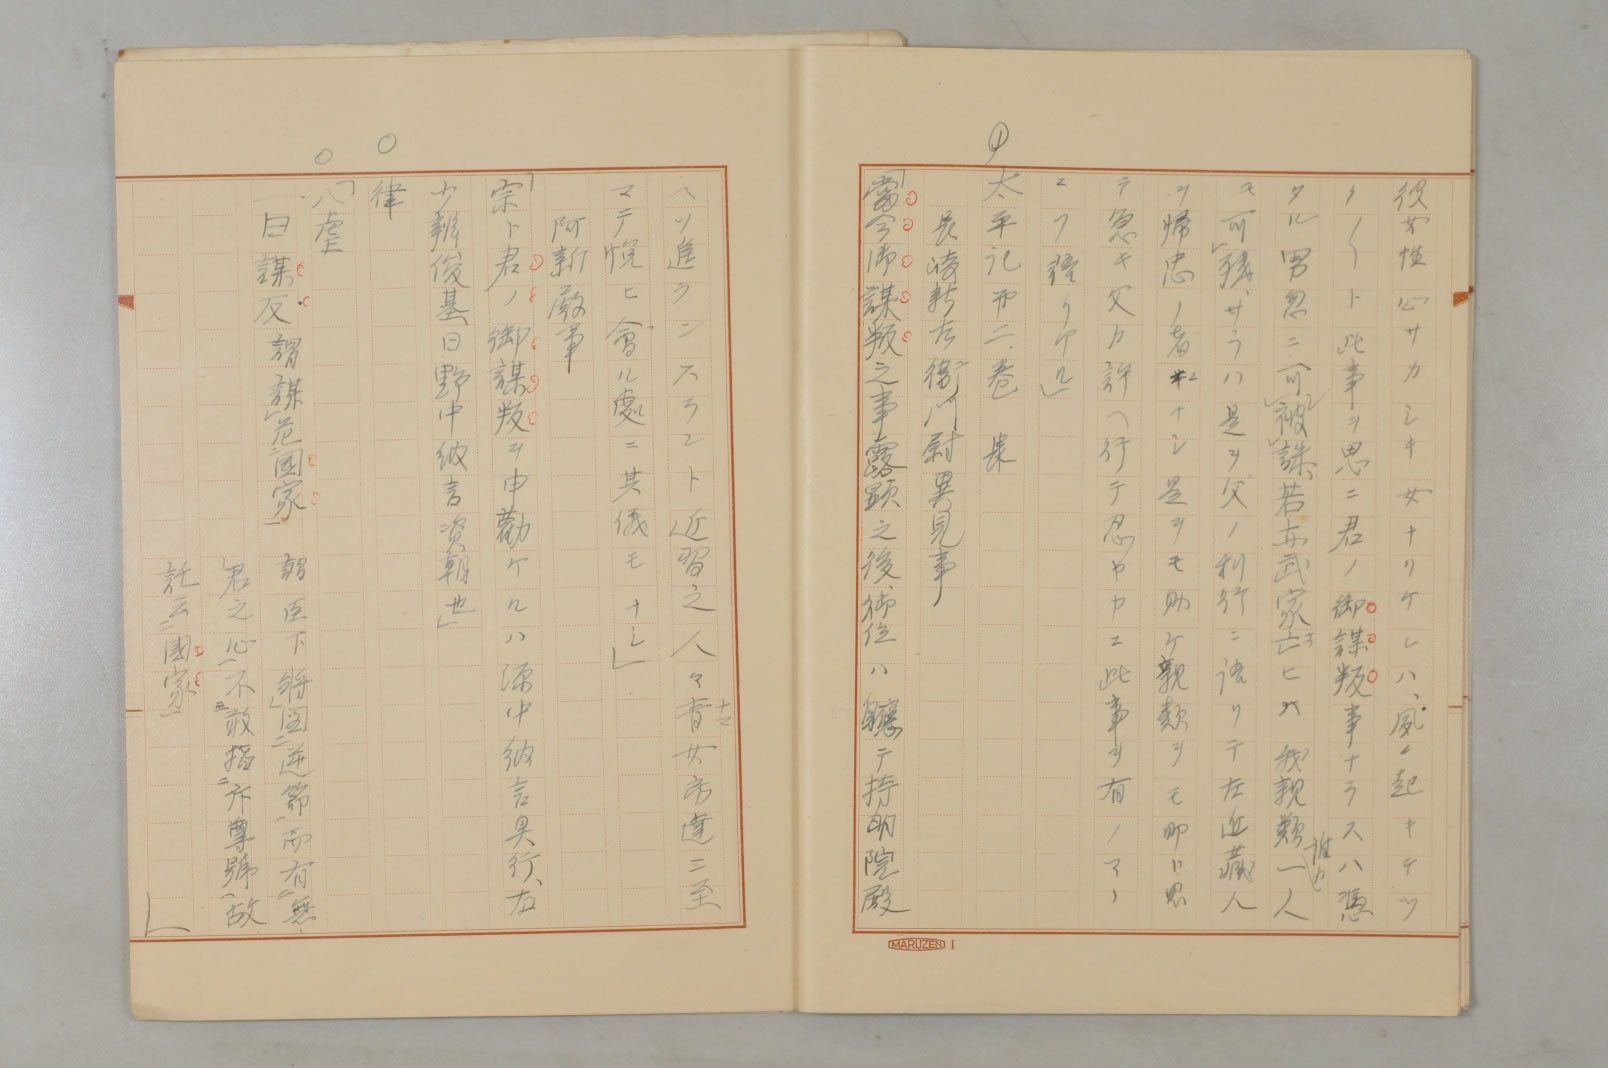 彼女性心サカシキ女ナリケレハ、夙ニ起キテツ
ク〱ト此事ヲ思ニ君ノ御謀叛事ナラスハ憑
タル男忽ニ可被誅若亦武家亡ヒハ我親類一人
誰カ
モ可残、サラハ是ヲ父ノ利行ニ語リテ左近蔵人
ヲ帰忠ノ者ナシ是ヲモ助ケ親類ヲモ助ト思
テ急キ父カ許ヘ行テ忍ヤカニ此事ヲ有ノマヽ
ニソ語リケル」
太平記第二巻
長崎新左衛門尉異見事
「當今御謀叛之事露顕之後、御位ハ軈テ持明院殿
ヘソ進ランスラント近習之人々青女房達ニ至
マテ悦ヒ會ル處ニ其儀モナシ」
阿新殿事
「宗ト君ノ御謀叛ヲ申勸ケルハ源中納言具行、右
少辨俊基日野中納言資朝也」
律
「八虐
一曰謀反 謂謀危國家 謂臣下将圖逆節而有無
君之心不敢指斥尊號故
託云國家」
MARUZEN 1